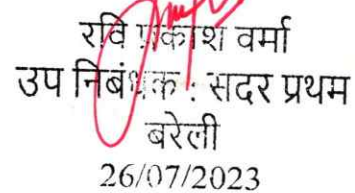 रवि प्रकाश वर्मा
उप निबंधक : सदर प्रथम
बरेली
26/07/2023